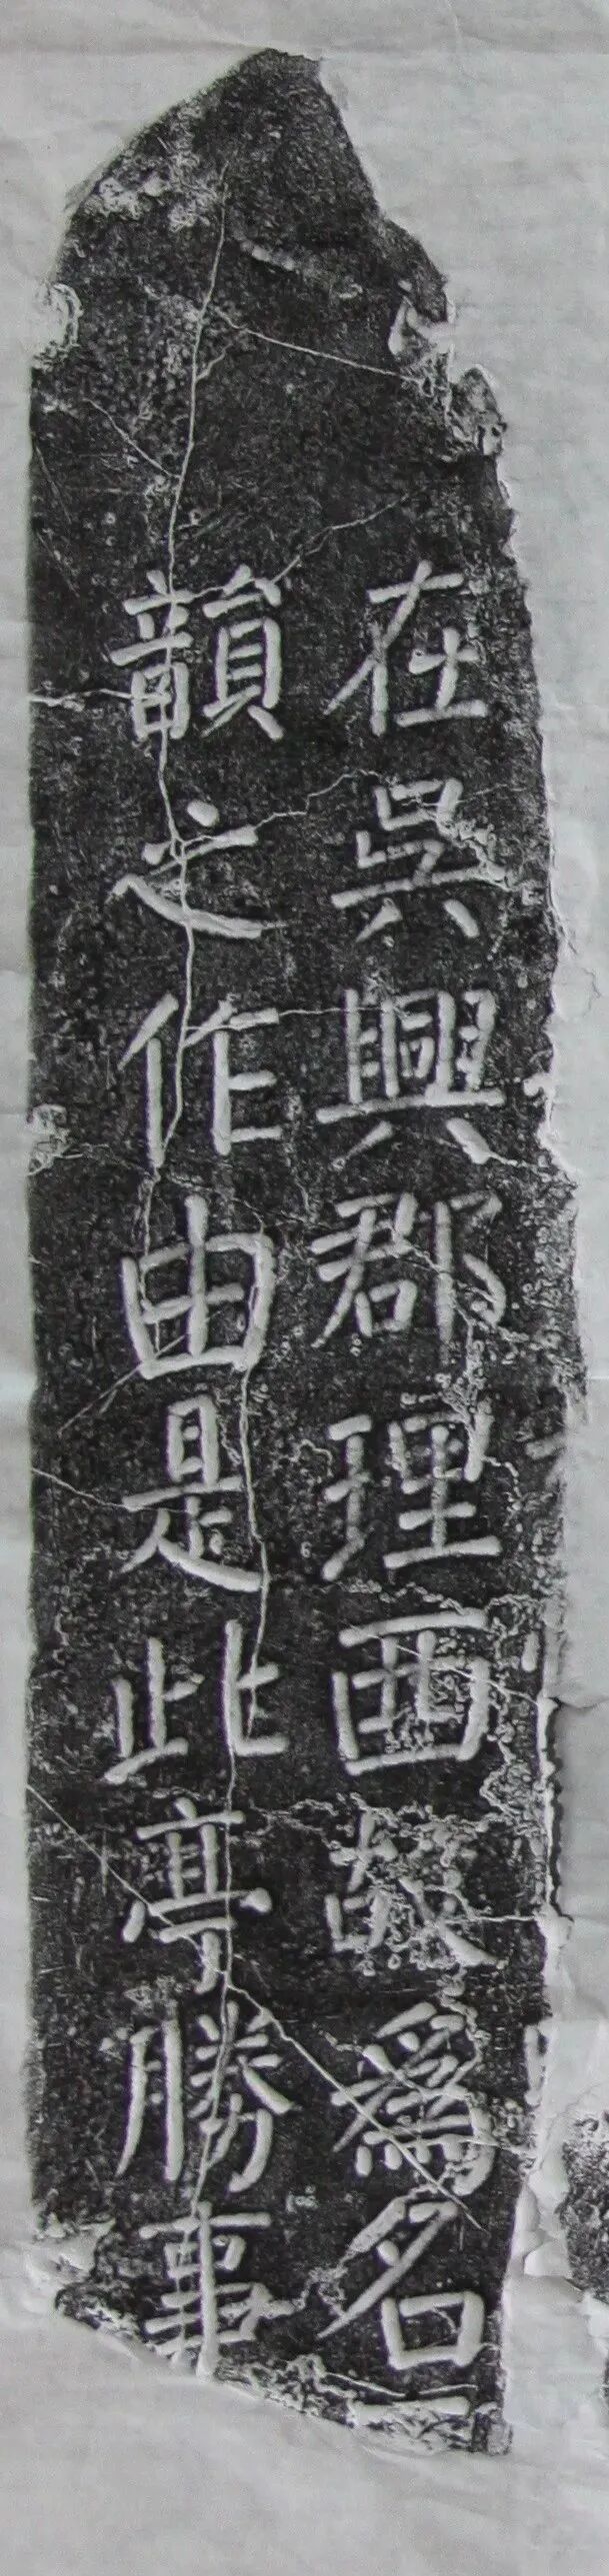 在吳興郡理西故爲名
韻之作由是此亭勝事